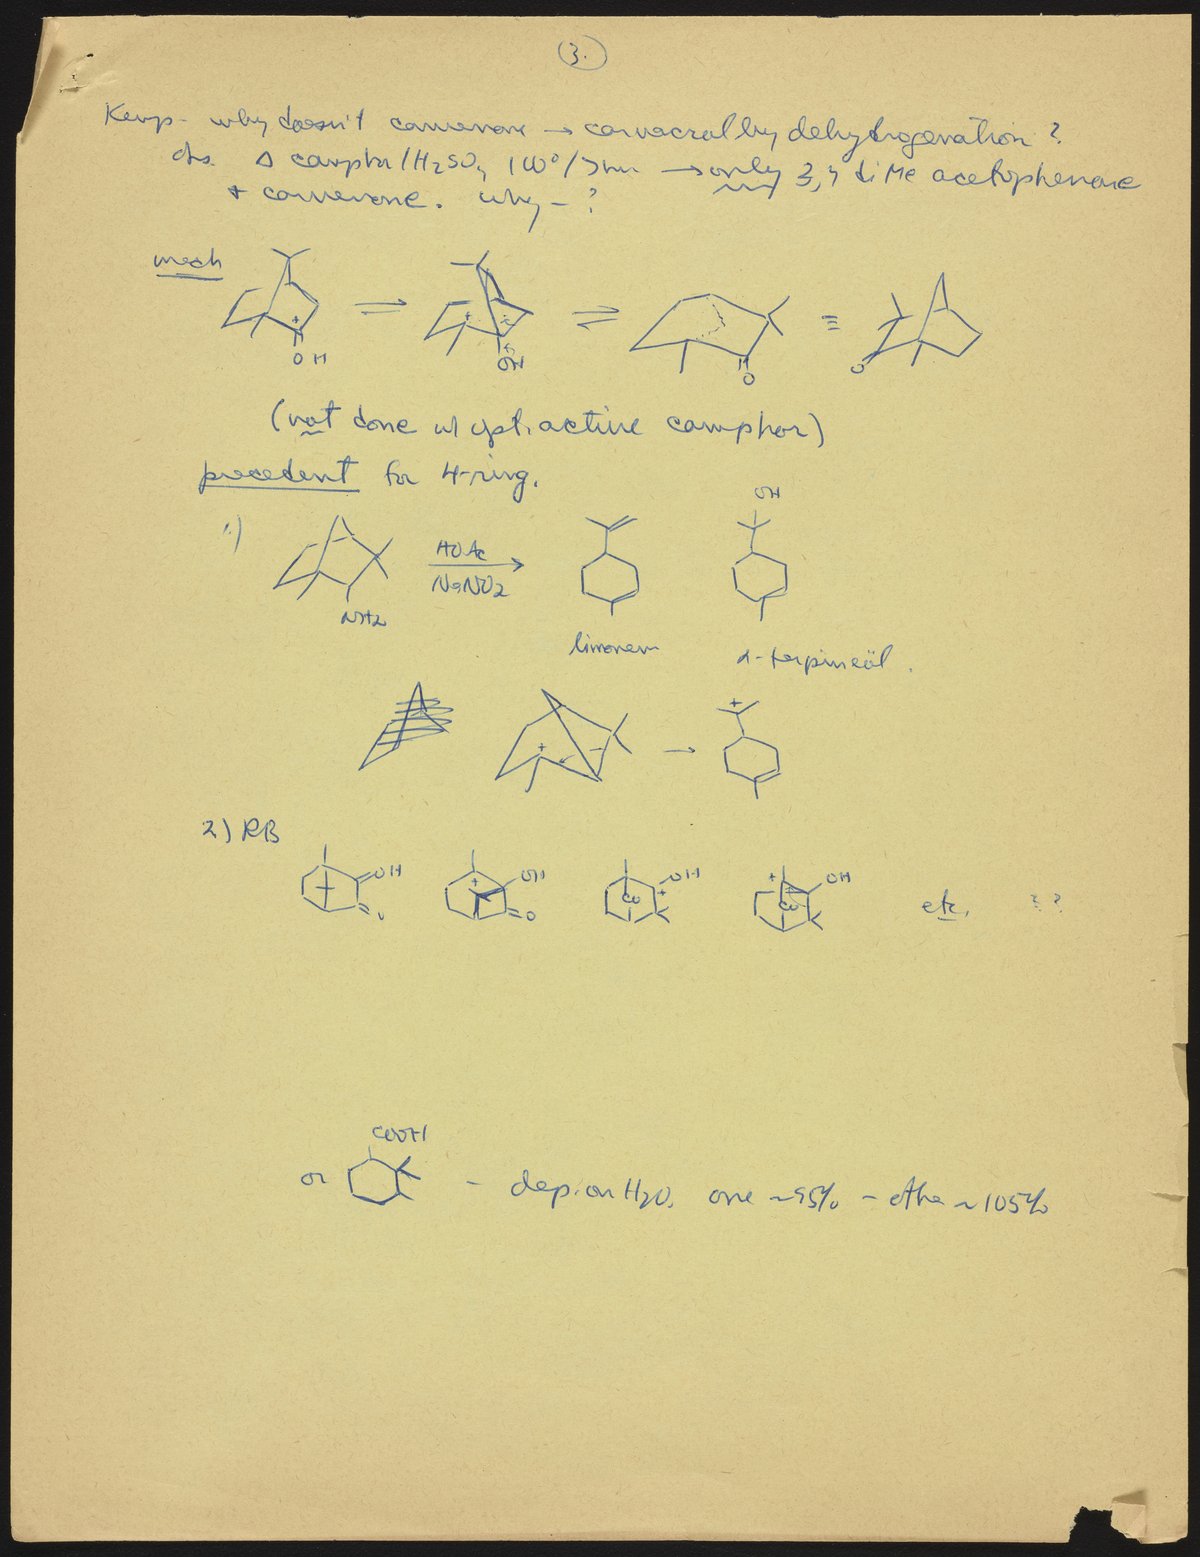 (3.)
Kemp - why doesn't carvenone → carvacrol by dehydrogenation ?
obs. Δ camphor / H2SO4 100° / → only 3,4 diMe acetophenone
+ carvenone. why - ?
mech
OH
OH
O
O
(not done w/ opt. active camphor)
precedent for 4-ring.
1)
NH2
HOAc
NaNO2
OH
limonen
α-terpineöl.
2) RB
OH
O
OH
O
CO
OH
CO
OH
etc.
? ?
COOH
or
- dep. on H2O, one ~95% - othe ~105%